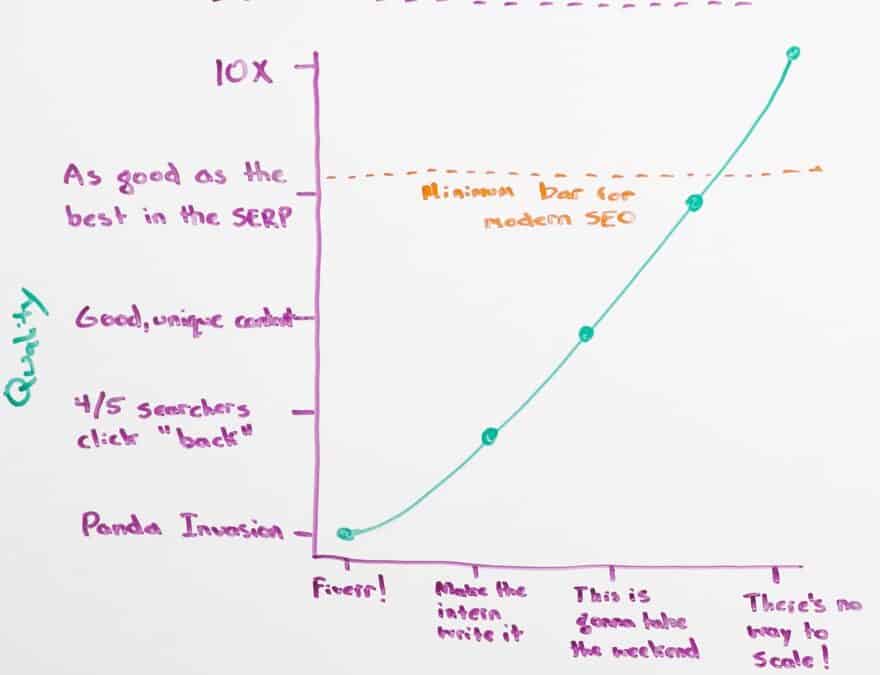 10X
As good as the
best in the SERP
Minimum bar for
modern SEO
Good, unique content
Quality
4/5 searchers
click "back"
Panda Invasion
Fiverr!
Make the
intern
write it
This is
gonna take
the weekend
There's no
way to
scale!